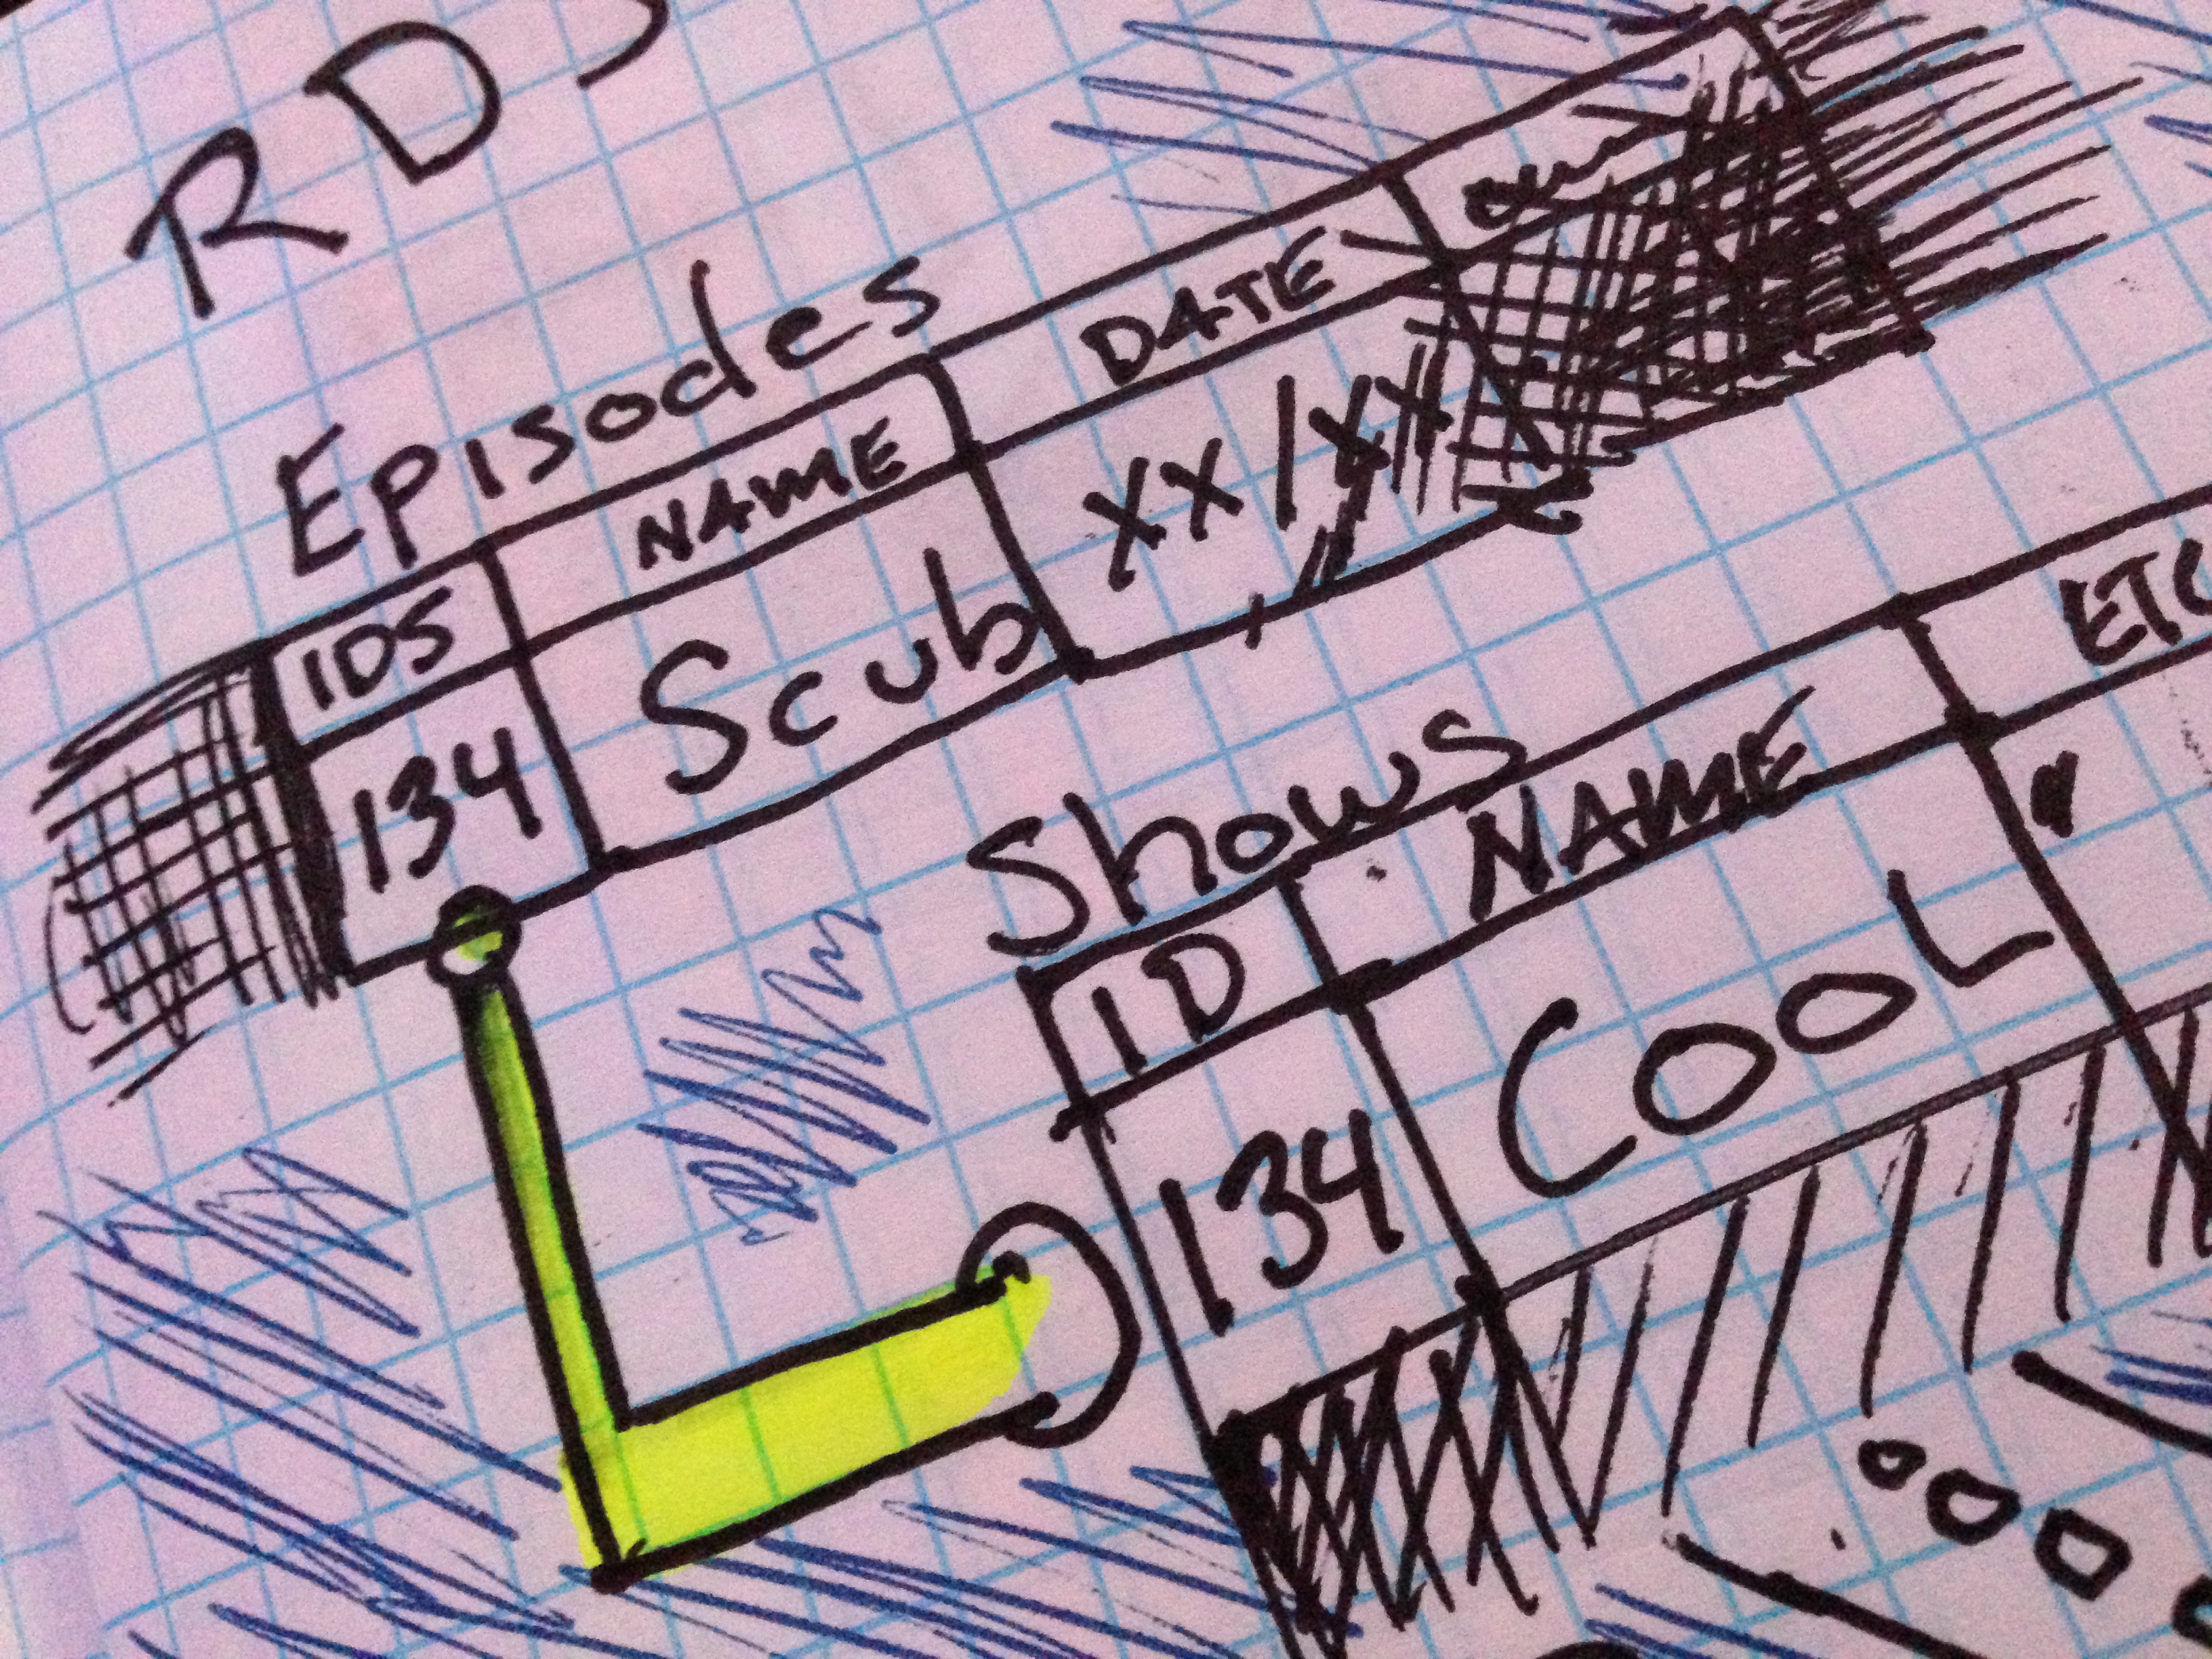 RD
Episodes
IDS NAME DATE
134 Scub XX/XX
Shows
ID NAME ETC
134 COOL